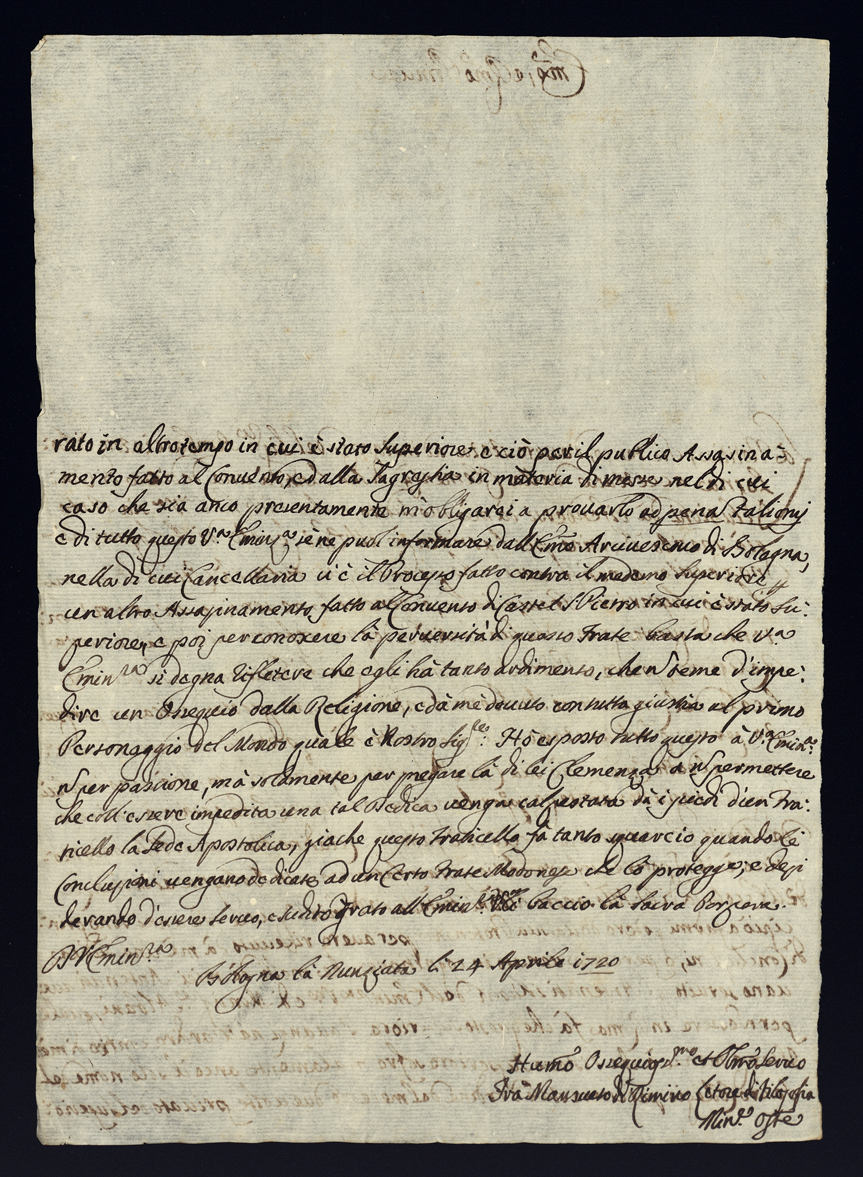 rato in altro tempo in cui è stato Superiore e ciò per il publico Assasina=
mento fatto al Convento, e dalla Sagrestia in materia di messe nel di cui
caso che sia anco presentamente m'obligarei a provarlo ad pena Talionis
e di tutto questo V.ra Emin.za se ne puol informare dall'Emo Arcivescovo di Bologna,
nella di cui Cancellaria vi è il Processo fatto contra il medemo Superiore
un altro Assasinamento fatto al Convento di Castel S. Pietro in cui è stato Su:
periore, e poi per conoscere la perversità di questo Frate basta che V.ra
Emin.za si degna riflettere che egli hà tanto ardimento, che ñ teme d'impe:
dire un Ossequio dalla Religione, e dà me dovuto con tutta giustizia al primo
Personaggio del Mondo quale è Nostro Sig.re Hò esposto tutto questo à V.ra Emin.za
ñ per passione, mà solamente per pregare là di lei Clemenza a ñ permettere
che coll'essere impedita una tal Dedica venga calpestata dà i piedi d'un Fra:
ticello la Sede Apostolica, giache questo Fraticello fà tanto squarcio quando le
Conclusioni vengano dedicate ad un Certo Frate Modonese che lo protegge; e desi
derando d'essere servo, e suddito grato all'Emin.za baccio là Sacra Porpora.
D V Emin.za
Bologna là Nunziata li 24 Aprile 1720
Humo Ossequiosmo et Obmo Servo
Frà Mansueto di Rimino Lettore di Filosofia
Min.e Osse